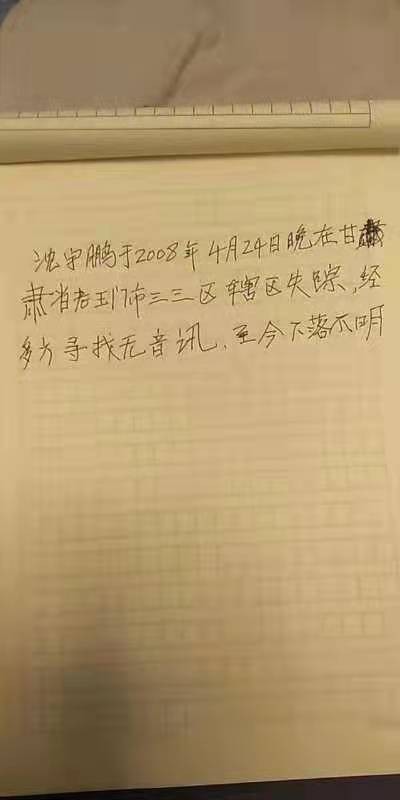 沈宇鹏于2008年4月24日晚在甘
肃省老玉门市三三区辖区失踪,经
多方寻找无音讯,至今下落不明